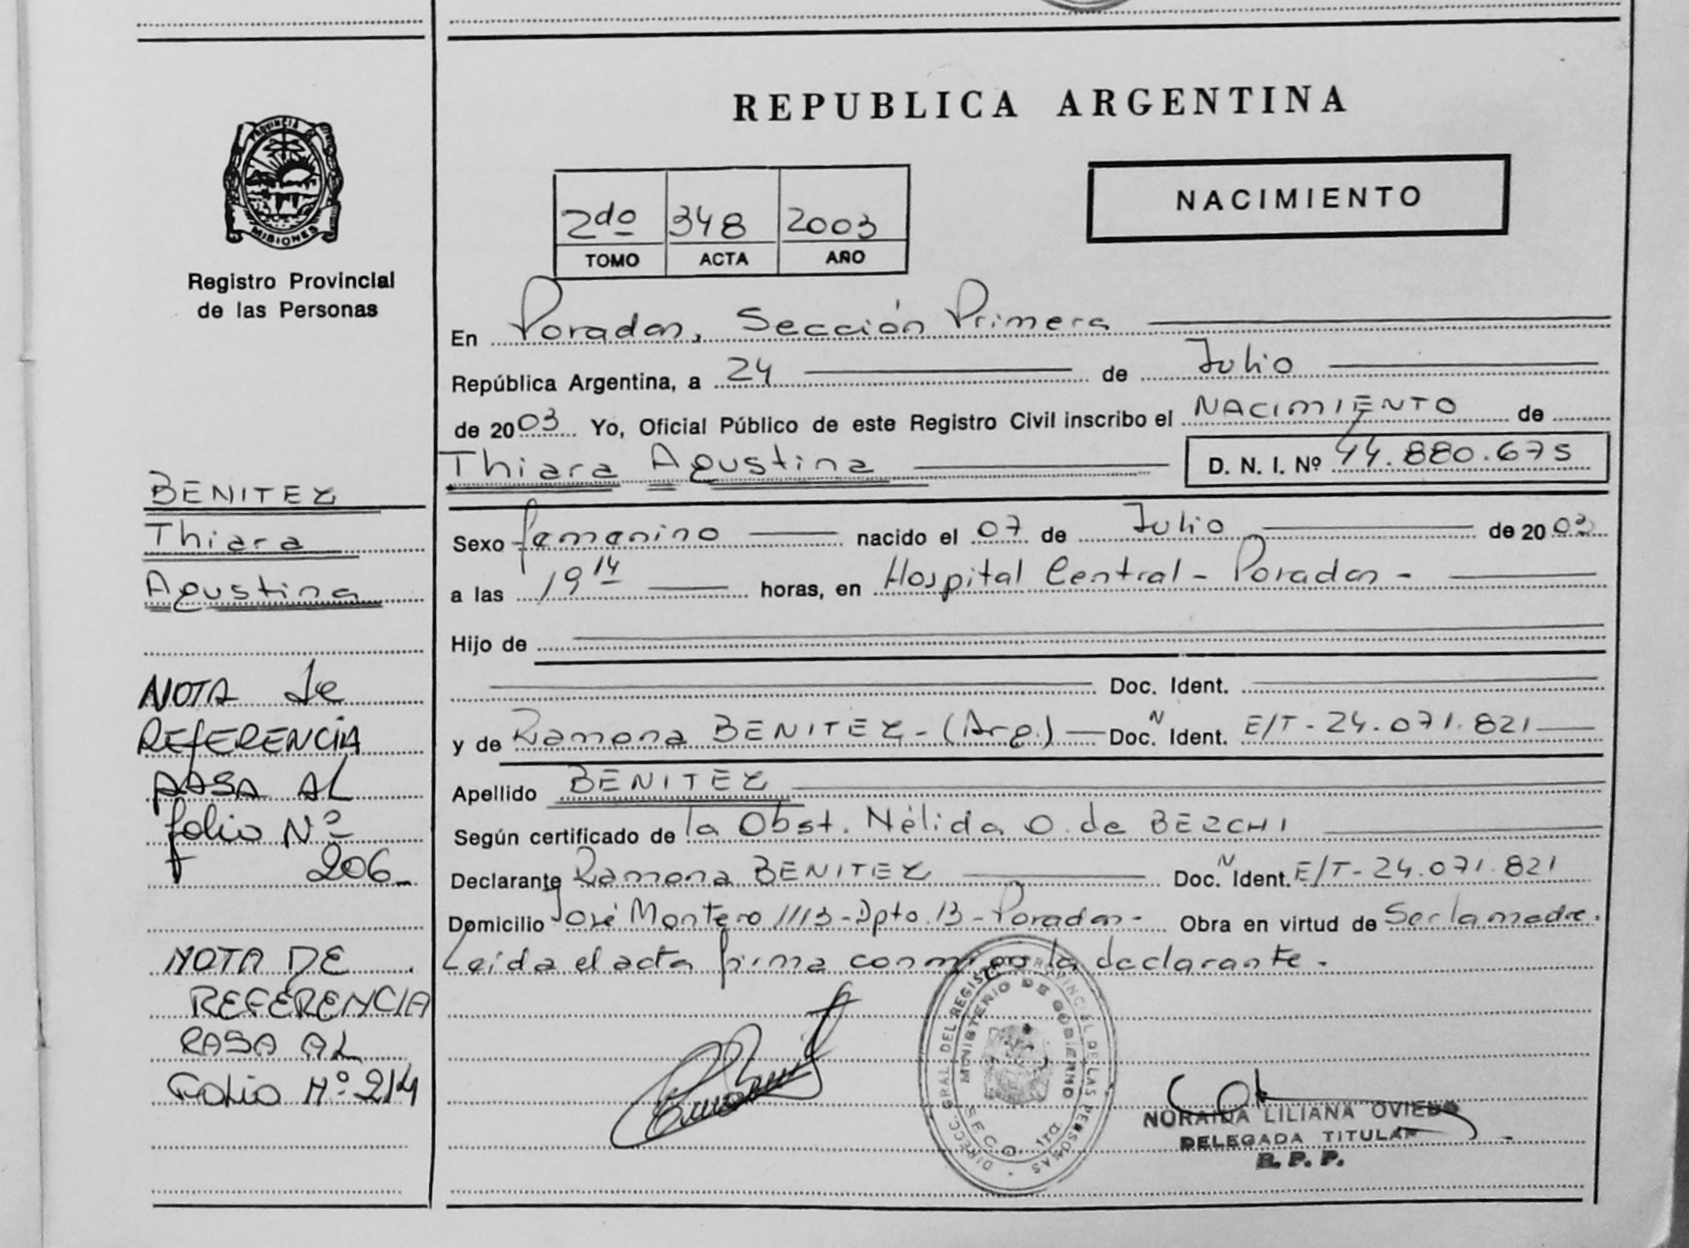 REPUBLICA ARGENTINA
PROVINCIA DE
MISIONES
Registro Provincial
de las Personas
2do 348 2003
TOMO ACTA AÑO
NACIMIENTO
En Posadas, Sección Primera
República Argentina, a 24 de Julio
de 2003 Yo, Oficial Público de este Registro Civil inscribo el NACIMIENTO de
Thiara Agustina D. N. I. Nº 44.880.675
BENITEZ
Thiara
Agustina
Sexo femenino nacido el 07 de Julio de 2003
a las 19 14 horas, en Hospital Central - Posadas -
Hijo de
Doc. Ident.
y de Ramona BENITEZ - (Arg.) Doc. N Ident. E/T - 24.071.821
Apellido BENITEZ
Según certificado de la Obst. Nélida O. de BEZCHI
Declarante Ramona BENITEZ Doc. N Ident. E/T - 24.071.821
Domicilio José Montero 1113 - Dpto. 13 - Posadas - Obra en virtud de Ser la madre.
Leída el acta firma conmigo la declarante.
NOTA de
REFERENCIA
PASA AL
folio Nº
206
NOTA DE
REFERENCIA
PASA AL
Folio Nº 214
DIRECC. GRAL. DEL REGISTRO PROVINCIAL DE LAS PERSONAS
MINISTERIO DE GOBIERNO
SECC. 1ra.
NORAIDA LILIANA OVIEDO
DELEGADA TITULAR
R. P. P.